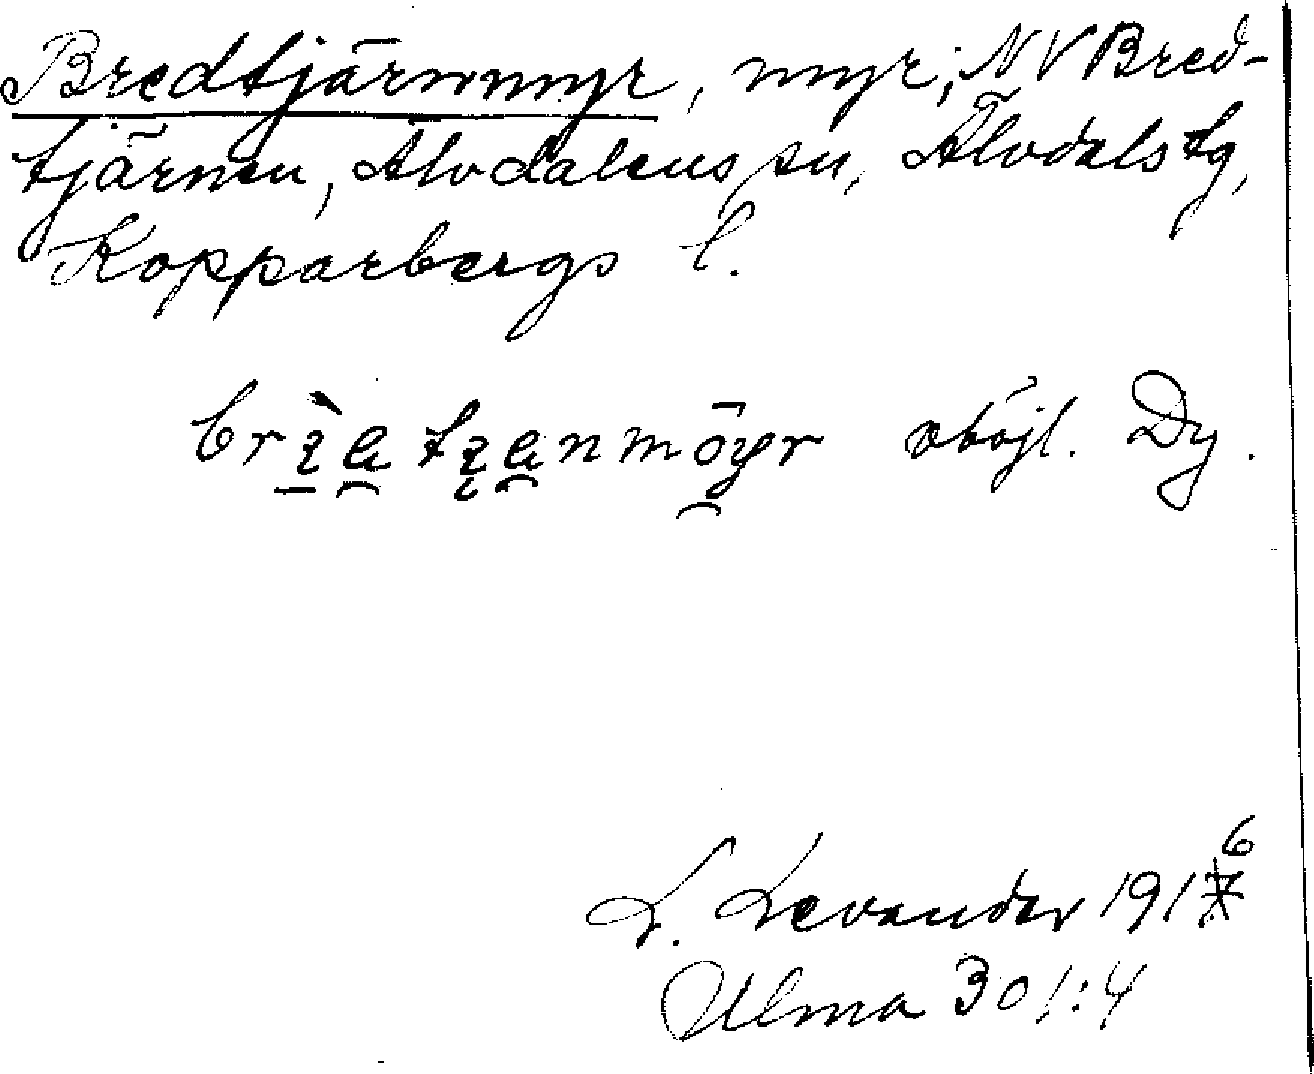 Bredtjärnmyr, myr, NV Bred-
tjärnen, Älvdalens sn, Älvdals tg,
Kopparbergs l.
oböjl. Dy.
L. Levander 1916
Ulma 301:4